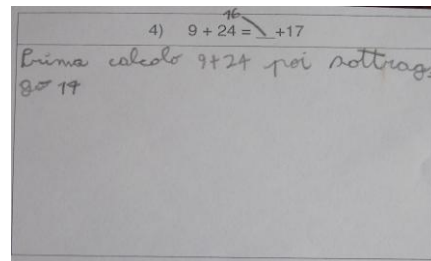 16
4) 9 + 24 = __ +17
Prima calcolo 9+24 poi sottrag
go 17